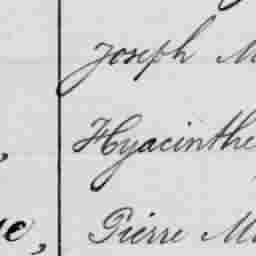 Joseph M
Hyacinthe
Pierre M